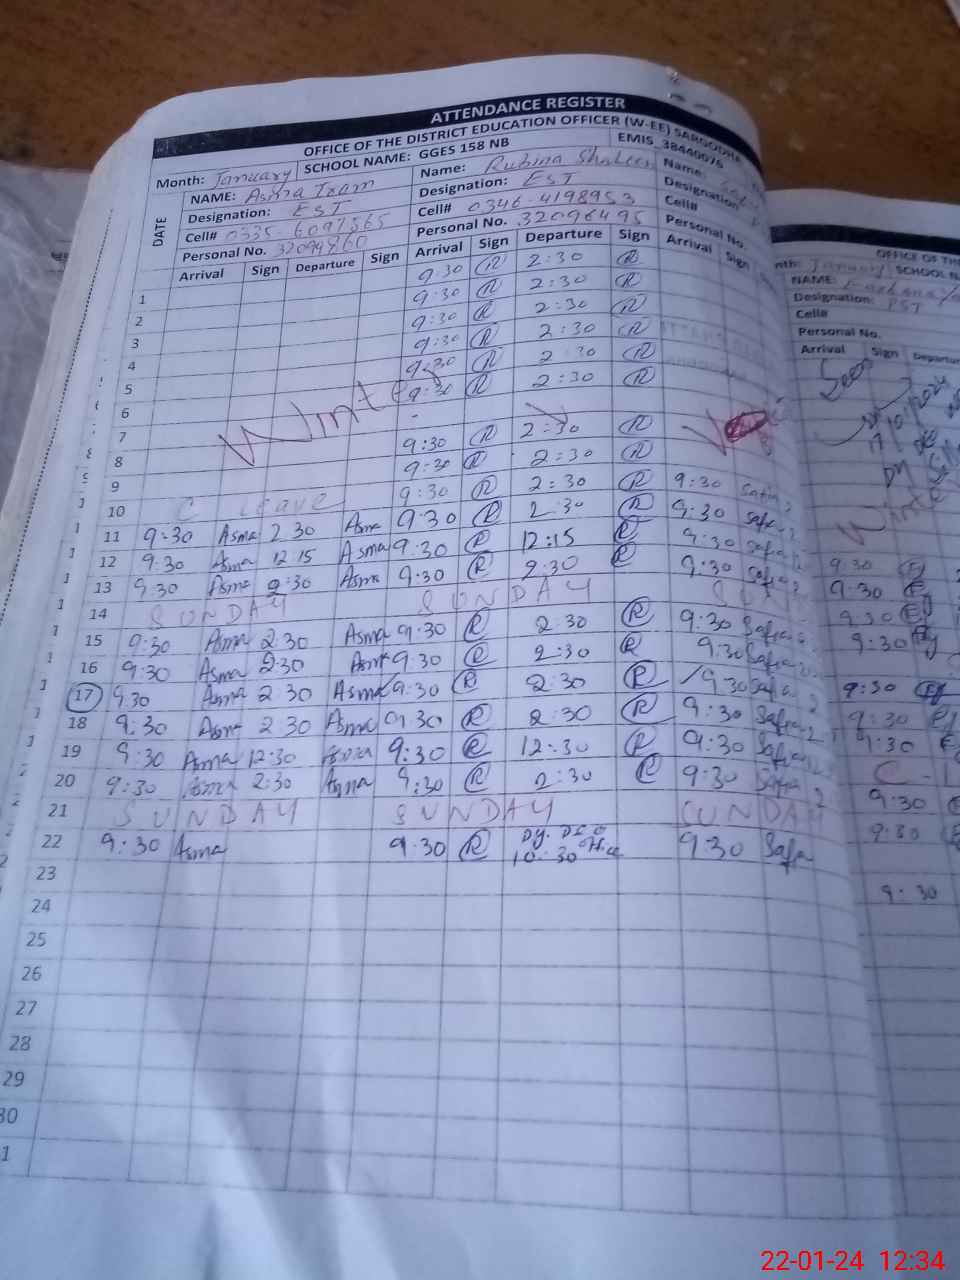 ATTENDANCE REGISTER
OFFICE OF THE DISTRICT EDUCATION OFFICER (W-EE) SARGODHA
Month: January SCHOOL NAME: GGES 158 NB EMIS 38440076
DATE
NAME: Asma Iram Name: Rubina Name:
Designation: EST Designation: EST Designation
Cell# 0335-6097565 Cell# 0346-4198953 Cell#
Personal No. Personal No. 32096495 Personal No.
Arrival Sign Departure Sign Arrival Sign Departure Sign Arrival Sign
9:30 R 2:30 R
1 9:30 R 2:30 R
2 9:30 R 2:30 R
3 9:30 R 2:30 R
4 9:30 R 2:30 R
5 9:30 R 2:30 R
6
Winter
7 9:30 R 2:30 R
8 9:30 R 2:30 R
9 9:30 R 2:30 R 9:30 Safia
10 C leave
11 9:30 Asma 2:30 Asma 9:30 R 2:30 R 9:30 Safia
12 9:30 Asma 12:15 Asma 9:30 R 12:15 R 9:30 Safia
13 9:30 Asma 2:30 Asma 9:30 R 2:30 R 9:30 Safia
14 SUNDAY SUNDAY SUN
15 9:30 Asma 2:30 Asma 9:30 R 2:30 R 9:30 Safia
16 9:30 Asma 2:30 Asma 9:30 R 2:30 R 9:30 Safia
17 9:30 Asma 2:30 Asma 9:30 R 2:30 R 9:30 Safia
18 9:30 Asma 2:30 Asma 9:30 R 2:30 R 9:30 Safia
19 9:30 Asma 12:30 Asma 9:30 R 12:30 R 9:30 Safia
20 9:30 Asma 2:30 Asma 9:30 R 2:30 R 9:30 Safia
21 SUNDAY SUNDAY SUNDAY
22 9:30 Asma 9:30 R Dy. DEO Office 10:30 9:30 Safia
23
24
25
26
27
28
29
30
1
OFFICE OF THE
January SCHOOL
NAME:
Designation: PST
Cell#
Personal No.
Arrival Sign Departure
Seen
17/01/2024
Winte
9:30
9:30
9:30
9:30
9:30
9:30
9:30
C-L
9:30
9:30
9:30
22-01-24 12:34